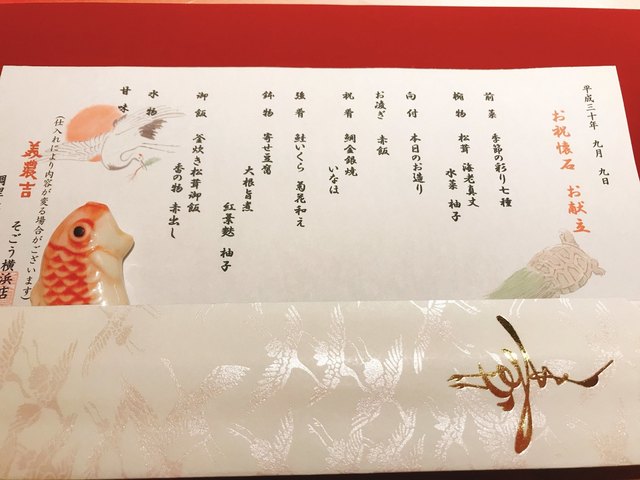 平成三十年 九月 九日
お祝懐石 お献立
前菜 季節の彩り七種
椀物 松茸 海老真丈
水菜 柚子
向付 本日のお造り
お凌ぎ 赤飯
祝肴 鯛金銀焼
いなほ
強肴 鮭いくら 菊花和え
鉢物 寄せ豆腐
大根旨煮
紅葉麩 柚子
御飯 釜炊き松茸御飯
香の物 赤出し
水物
甘味
(仕入れにより内容が変る場合がございます)
美濃吉
そごう横浜店
調理